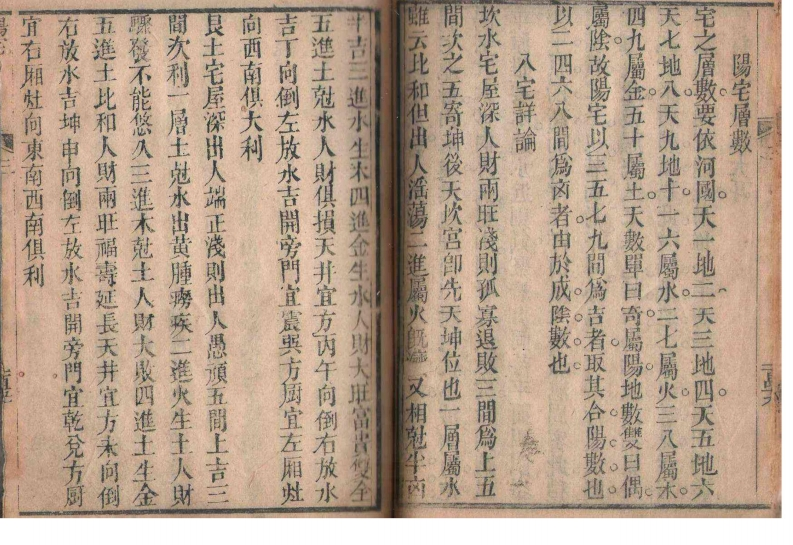 陽宅層數
宅之層數要依河圖天一地二天三地四天五地六
天七地八天九地十一六屬水二七屬火三八屬木
四九屬金五十屬土天數單曰奇屬陽地數雙曰偶
屬陰故陽宅以三五七九間為吉者取其合陽數也
以二四六八間為凶者由於成陰數也
八宅詳論
坎水宅屋深人財兩旺淺則孤寡退敗三間為上五
間次之五寄坤後天坎宮卽先天坤位也一層屬水
雖云比和但出人淫蕩二進屬火旣 又相尅半凶
半吉三進水生木四進金生水人財大旺富貴雙全
五進土尅水人財俱損天井宜方丙午向倒右放水
吉丁向倒左放水吉開旁門宜震巽方厨宜左厢灶
向西南俱大利
艮土宅屋深出人端正淺則出人愚頑五間上吉三
間次利一層土尅水出黃腫 疾二進火生土人財
驟發不能悠久三進木尅土人財大敗四進土生金
五進土比和人財兩旺福壽延長天井宜方未向倒
右放水吉坤申向倒左放水吉開旁門宜乾兌方厨
宜右厢灶向東南西南俱利